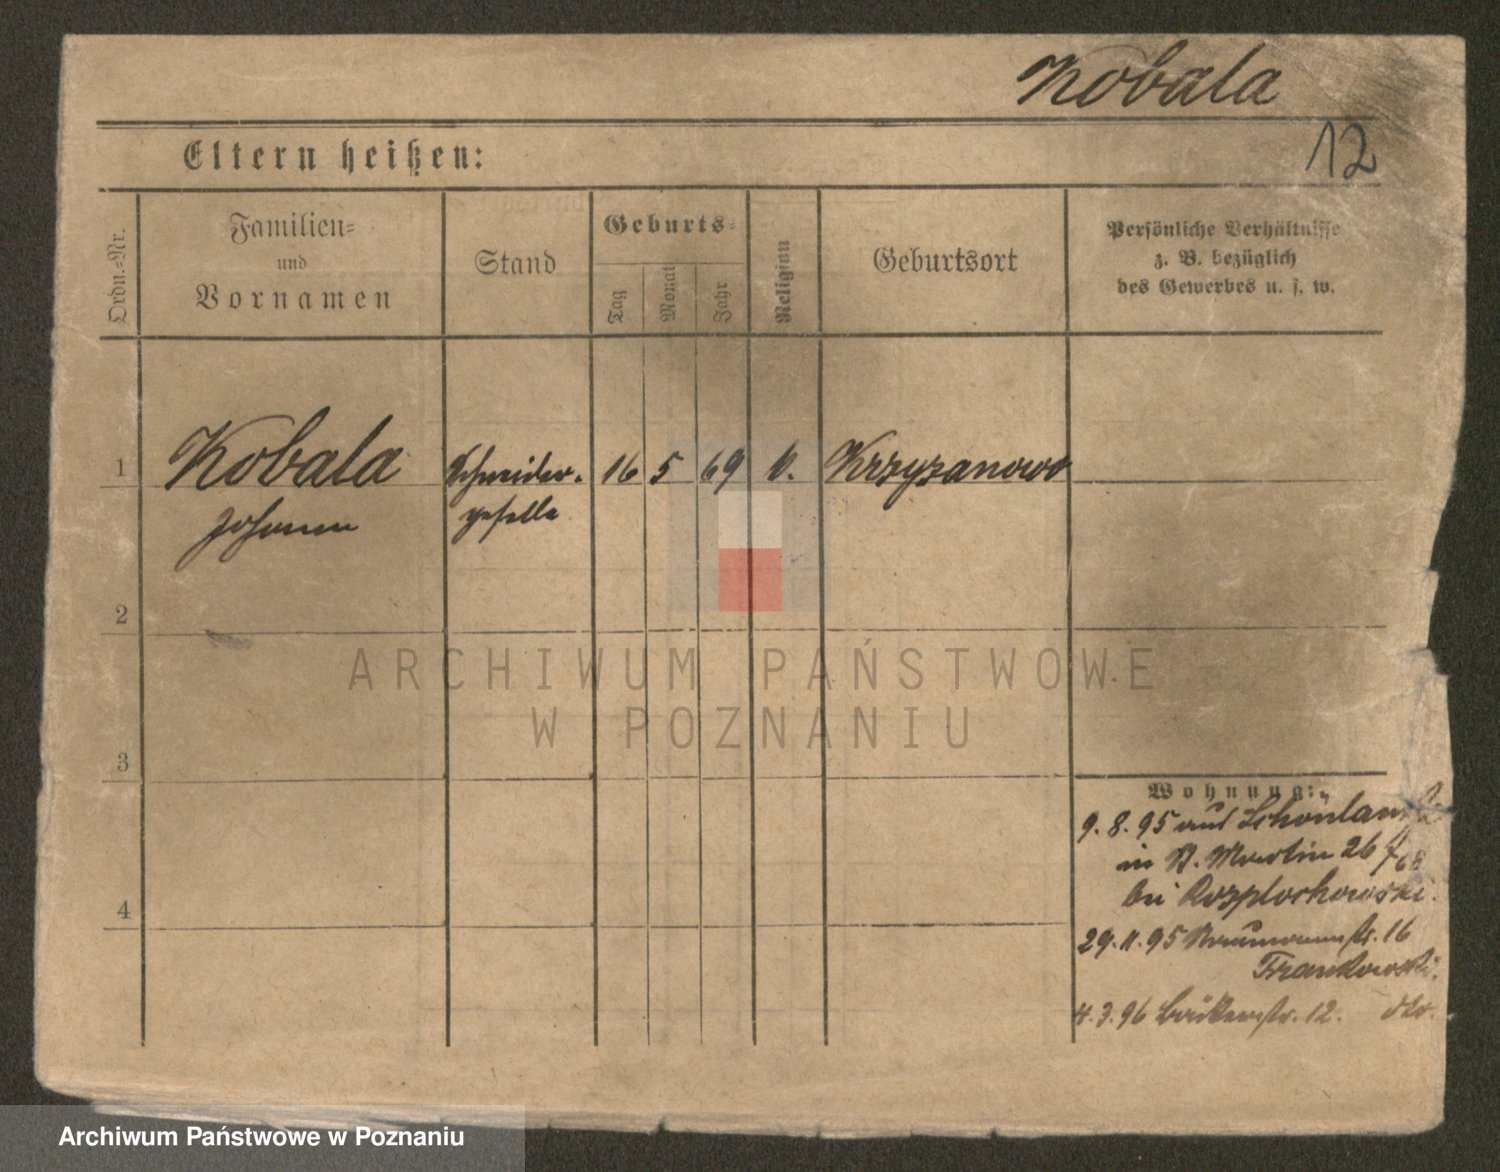 Kobala
12
Eltern heißen:
Ordn.-Nr.
Familien-
und
Vornamen
Stand
Geburts-
Tag
Monat
Jahr
Religion
Geburtsort
Persönliche Verhältnisse
z. B. bezüglich
des Gewerbes u. s. w.
1 Kobala Schneider- 16 5 69 Krzyzanowo
Johann geselle
2
ARCHIWUM PAŃSTWOWE
W POZNANIU
3
Wohnung:
9. 8. 95 aus Schönlanke
in St. Martin 26
bei Rozplochowski.
4
29. 11. 95 Naumannstr. 16
Frankowski.
4. 3. 96 Bäckerstr. 12.
Archiwum Państwowe w Poznaniu